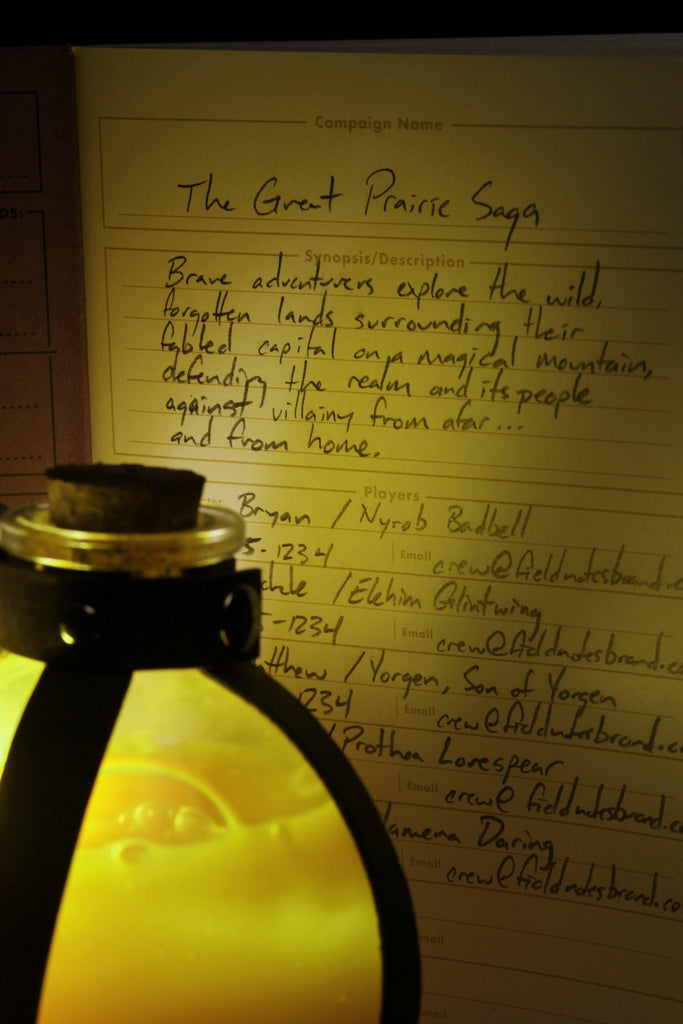 DS:
Campaign Name
The Great Prairie Saga
Synopsis/Description
Brave adventurers explore the wild,
forgotten lands surrounding their
fabled capital on a magical mountain,
defending the realm and its people
against villainy from afar...
and from home.
Players
Bryan / Nyrob Badbell
5-1234 Email crew@fieldnotesbrand.c
/Elehim Glintwing
5-1234 Email crew@fieldnotesbrand.co
tthew / Yorgen, Son of Yorgen
1234 Email crew@fieldnotesbrand.c
/Prothea Lorespear
Email crew@fieldnotesbrand.c
lamena Daring
Email crew@fieldnotesbrand.co
mail
mail